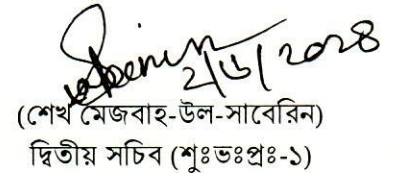 ২/৬/২০২৪
(শেখ মেজবাহ-উল-সাবেরিন)
দ্বিতীয় সচিব (শুঃভঃপ্রঃ-১)